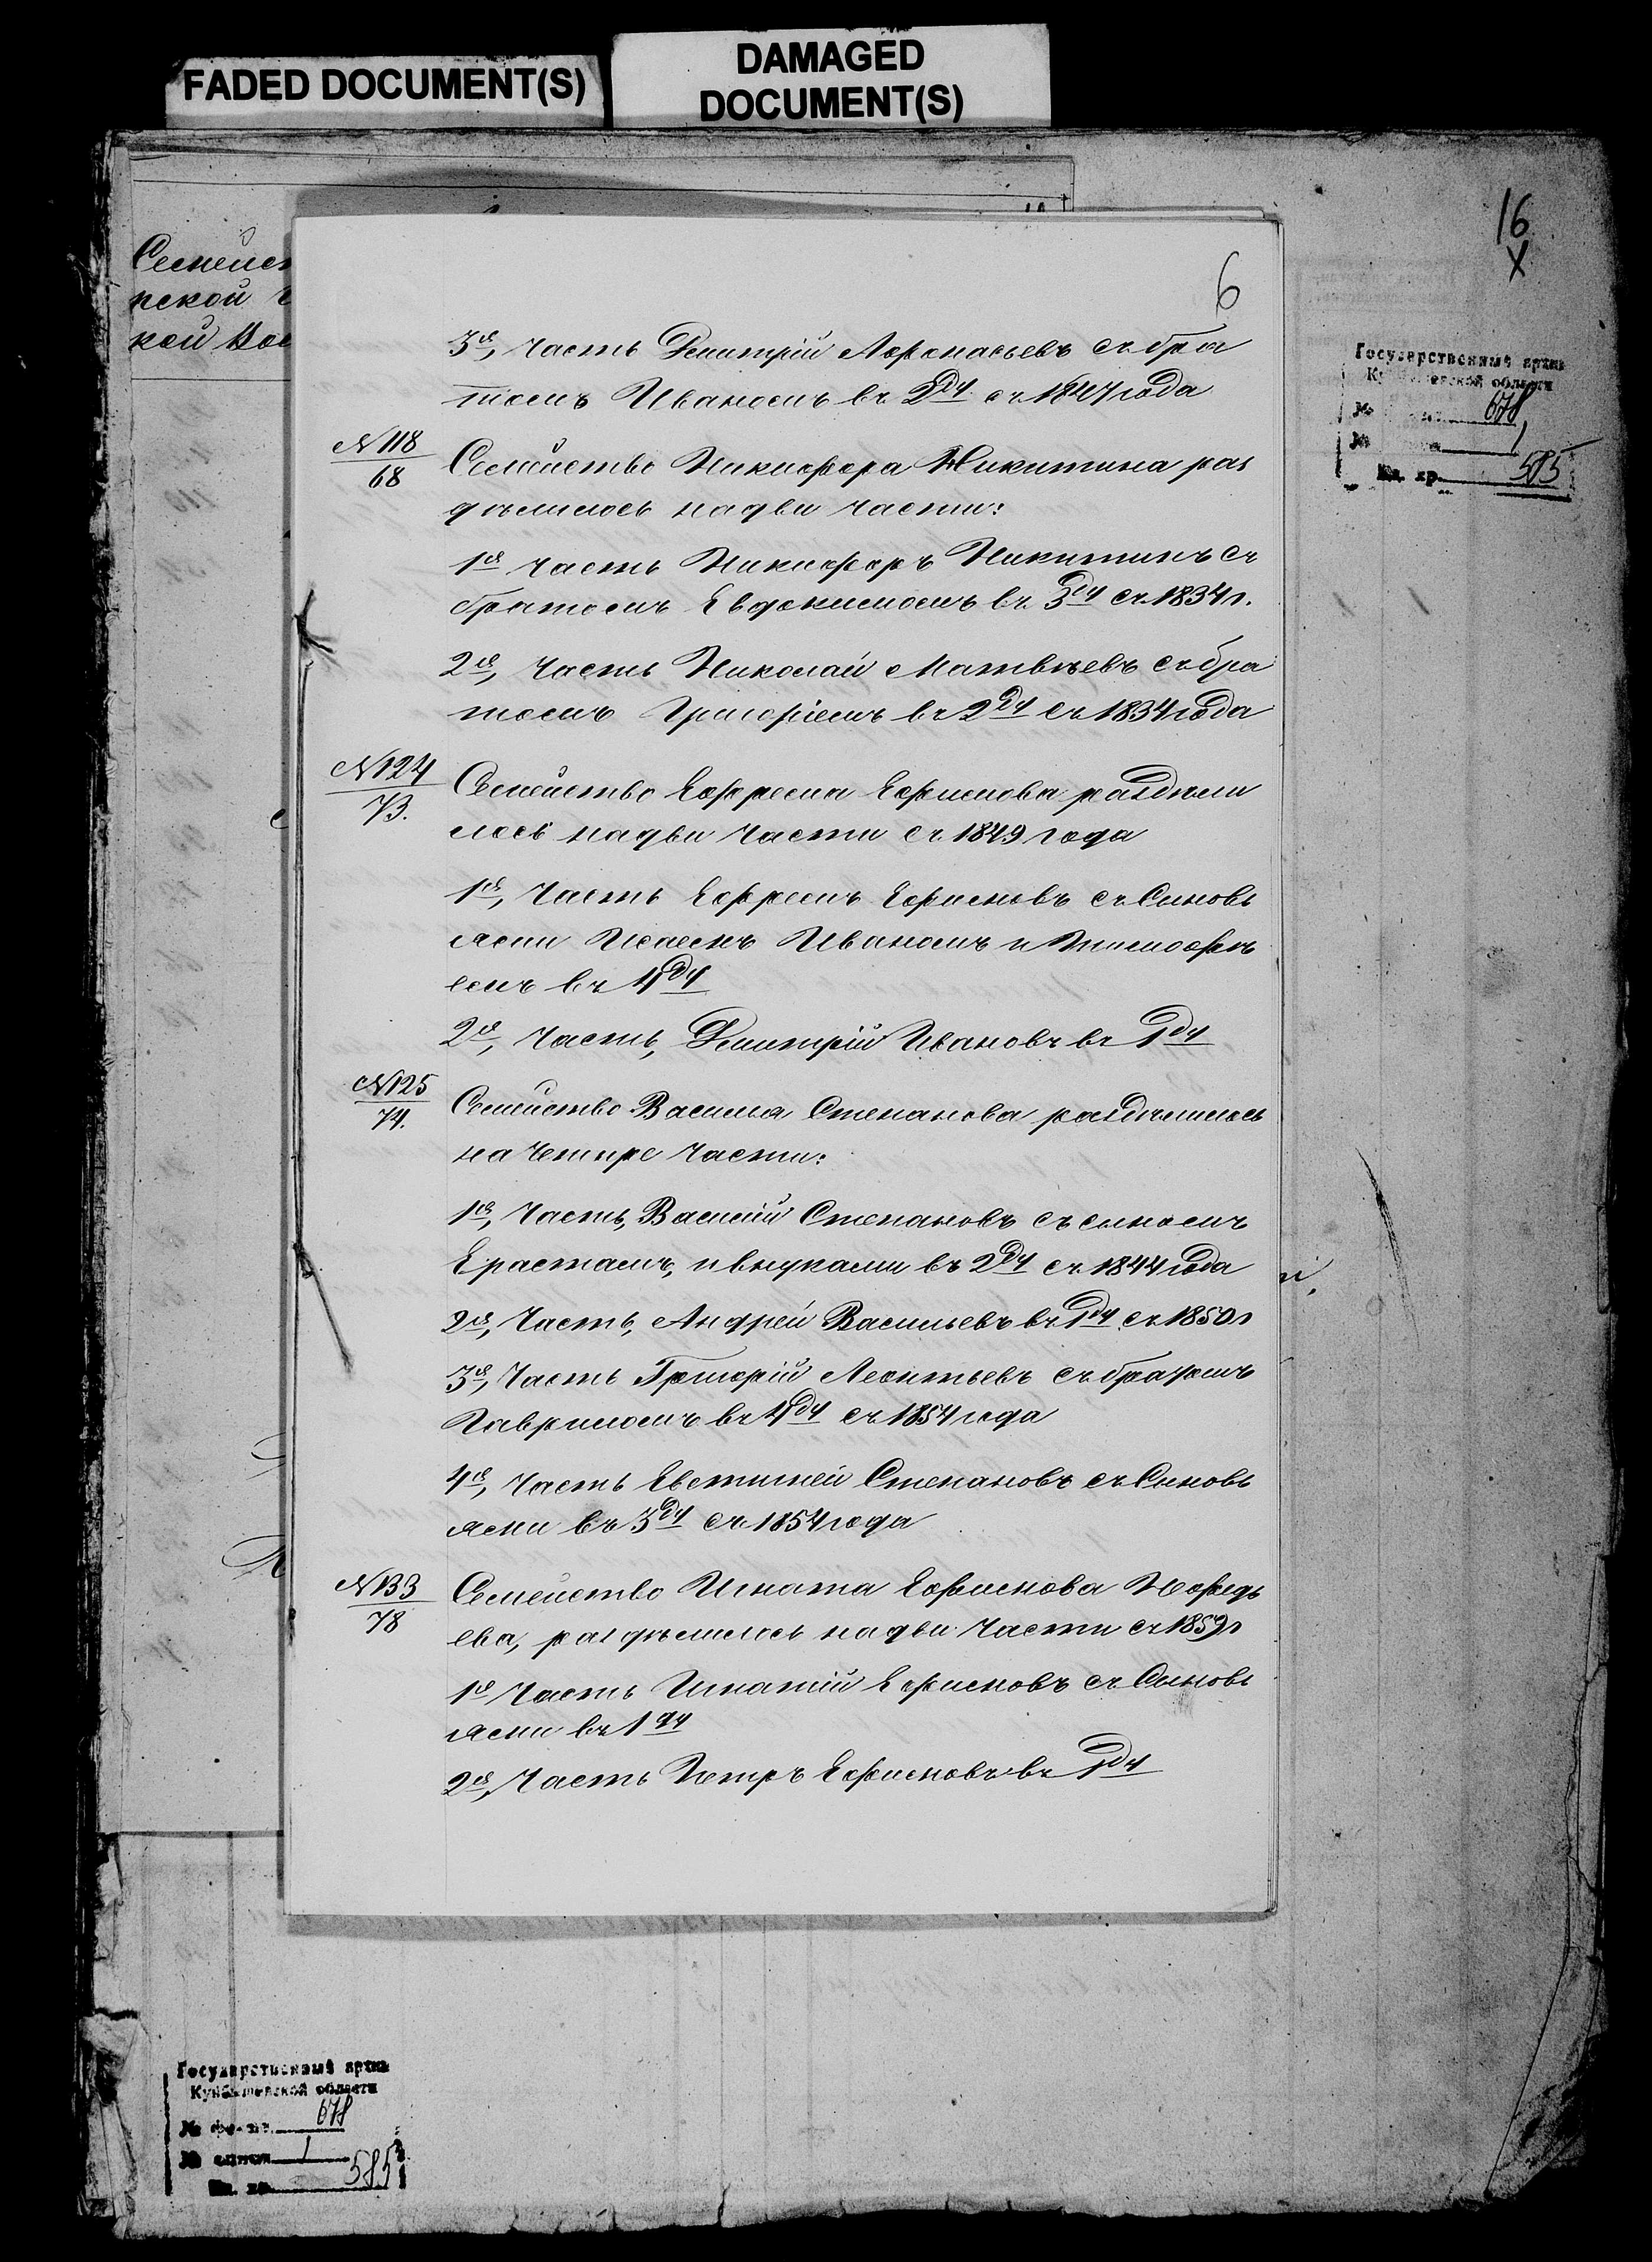 FADED DOCUMENT(S)
DAMAGED
DOCUMENT(S)
16
X
6
Государственный архив
Куйбышевской области
№ 678
№ 1
Ед. хр. 585
3я, часть Дмитрій Афонасьевъ съ бра
томъ Иваномъ въ 2ду съ 1847 года
N 118
68
Семейство Никифора Никитина раз
дѣлилось надви части:
1я часть Никифоръ Никитинъ съ
братомъ Евдокимомъ въ 3ду съ 1834 г.
2я, часть Николай Матвѣевъ съ бра
томъ Григоріемъ въ 2ду съ 1834 года
N 124
73.
Семейство Ефрема Ефимова раздѣли
лось надви части съ 1849 года
1я, часть Ефремъ Ефимовъ съ Сыновь
ями Исаемъ Иваномъ и Тимофѣ
емъ въ 4ду
2я, часть, Дмитрій Ивановъ въ 1ду
N 125
74.
Семейство Василья Степанова раздѣлилось
на Четире части:
1я, Часть, Василій Степановъ съ сыномъ
Ерастамъ, и внуками въ 2ду съ 1844 года
2я, Часть, Андрей Васильевъ въ 1ду съ 1850 г
3я, Часть Григорій Леонтьевъ съ братомъ
Гавриломъ въ 4ду съ 1854 года
4я, Часть Евстигней Степановъ съ Сыновь
ями въ 3ду съ 1854 года
N 133
78
Семейство Игната Ефимова
ева, раздѣлилось надви части съ 1859 г
1я Часть Игнатій Ефимовъ съ Сыновь
ями въ 1ду
2я, Часть Петръ Ефимовъ въ 1ду
Государственный архив
Куйбышевской области
№ фонда 678
№ описи 1
Ед. хр. 585